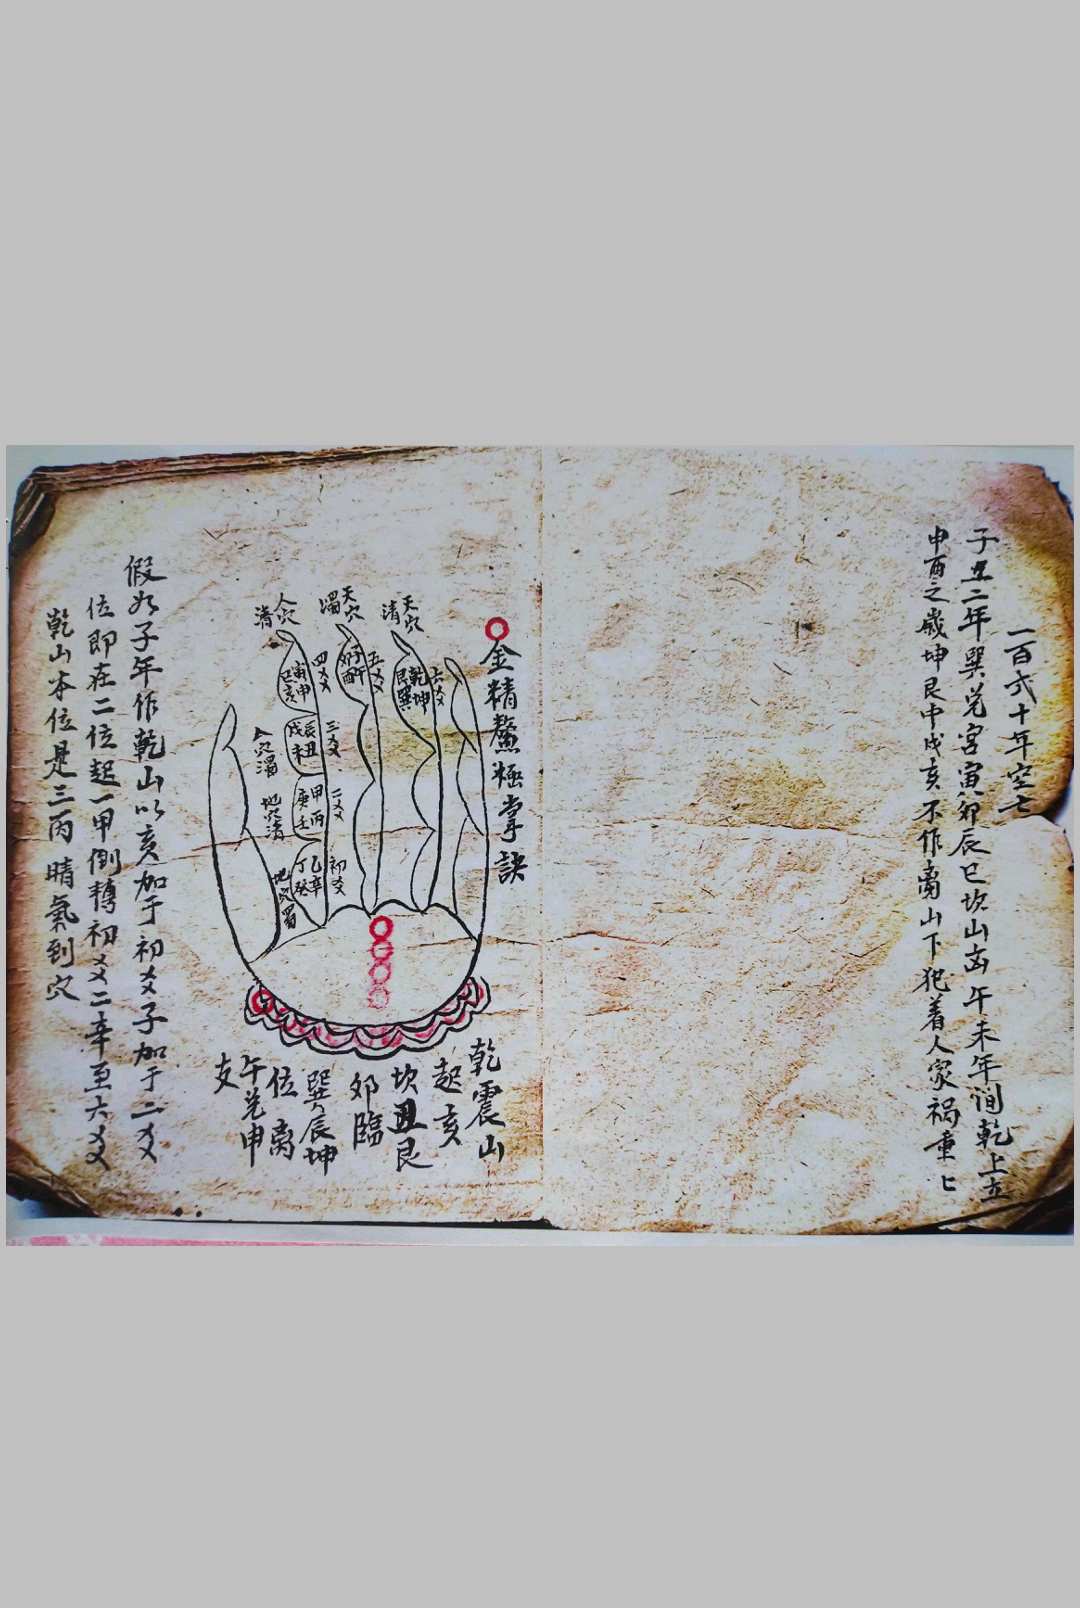 一百六十年空亡
子丑二年巽兑宫寅卯辰巳坎山 午未年润乾上立
申酉之歲坤艮中戌亥不作离山下犯着人家祸重
金精鰲極掌訣
天穴清
天穴濁
人穴清
人穴濁
地穴清
地穴
六爻
五爻
四爻
三爻
二爻
初爻
乾坤
艮巽
子午
卯酉
寅申
巳亥
辰丑
戌未
甲丙
庚壬
乙辛
丁癸
乾震山
起亥
坎丑艮
卯臨
巽辰坤
位离
午兑申
支
假如子年作乾山以亥加于初爻子加于二爻
位即在二位起一甲倒轉初爻二辛至六爻
乾山本位是三丙晴氣到穴